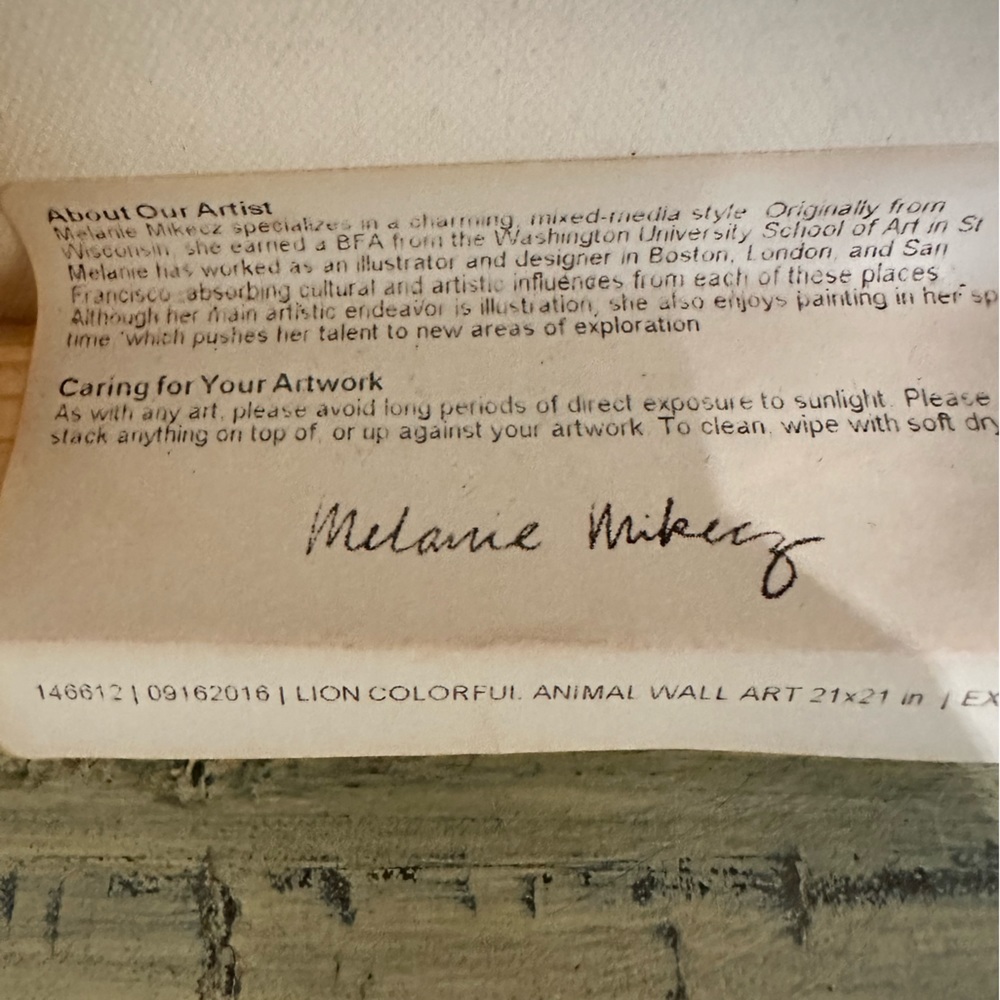 About Our Artist
Melanie Mikecz specializes in a charming, mixed-media style Originally from
Wisconsin, she earned a BFA from the Washington University School of Art in St
Melanie has worked as an illustrator and designer in Boston, London, and San
Francisco absorbing cultural and artistic influences from each of these places
Although her main artistic endeavor is illustration, she also enjoys painting in her sp
time which pushes her talent to new areas of exploration
Caring for Your Artwork
As with any art, please avoid long periods of direct exposure to sunlight. Please
stack anything on top of, or up against your artwork To clean, wipe with soft dry
Melanie Mikecz
146612 | 09162016 | LION COLORFUL ANIMAL WALL ART 21x21 in | EX